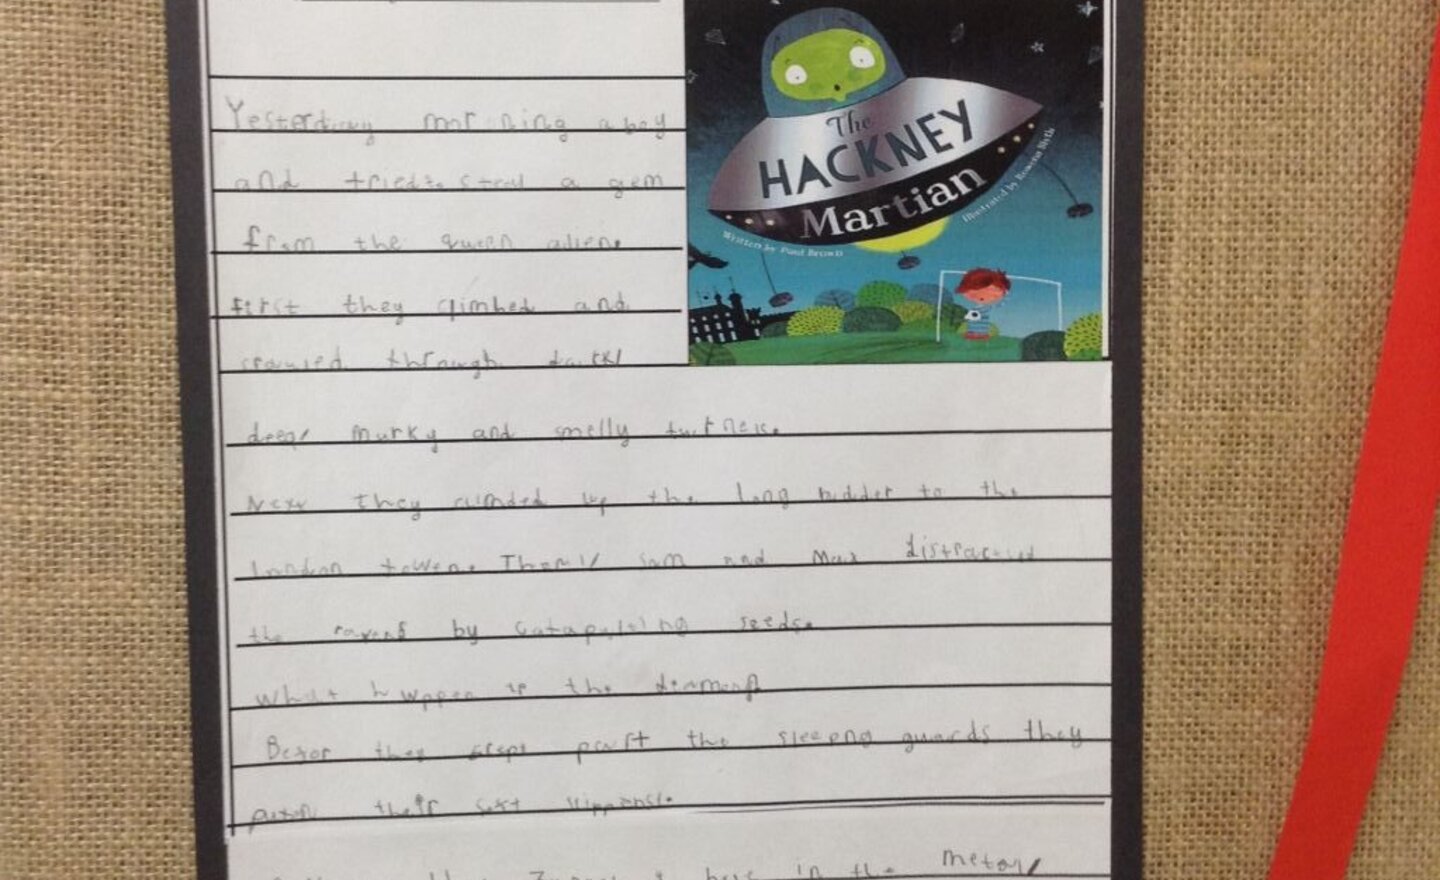 The
HACKNEY
Martian
Written by Paul Brown
Illustrated by Rowena Blyth
Yesterday mor ning a boy
and tried to steal a gem
from the queen alien.
first they climbed and
crawled through dark/
deep/ murky and smelly
Next they up the long to the
london tower. Then// sam and Max distracted
the ravens by catapulting seeds.
What happen to the
Befor they crept past the sleepng guards they
their soft
in the metal/